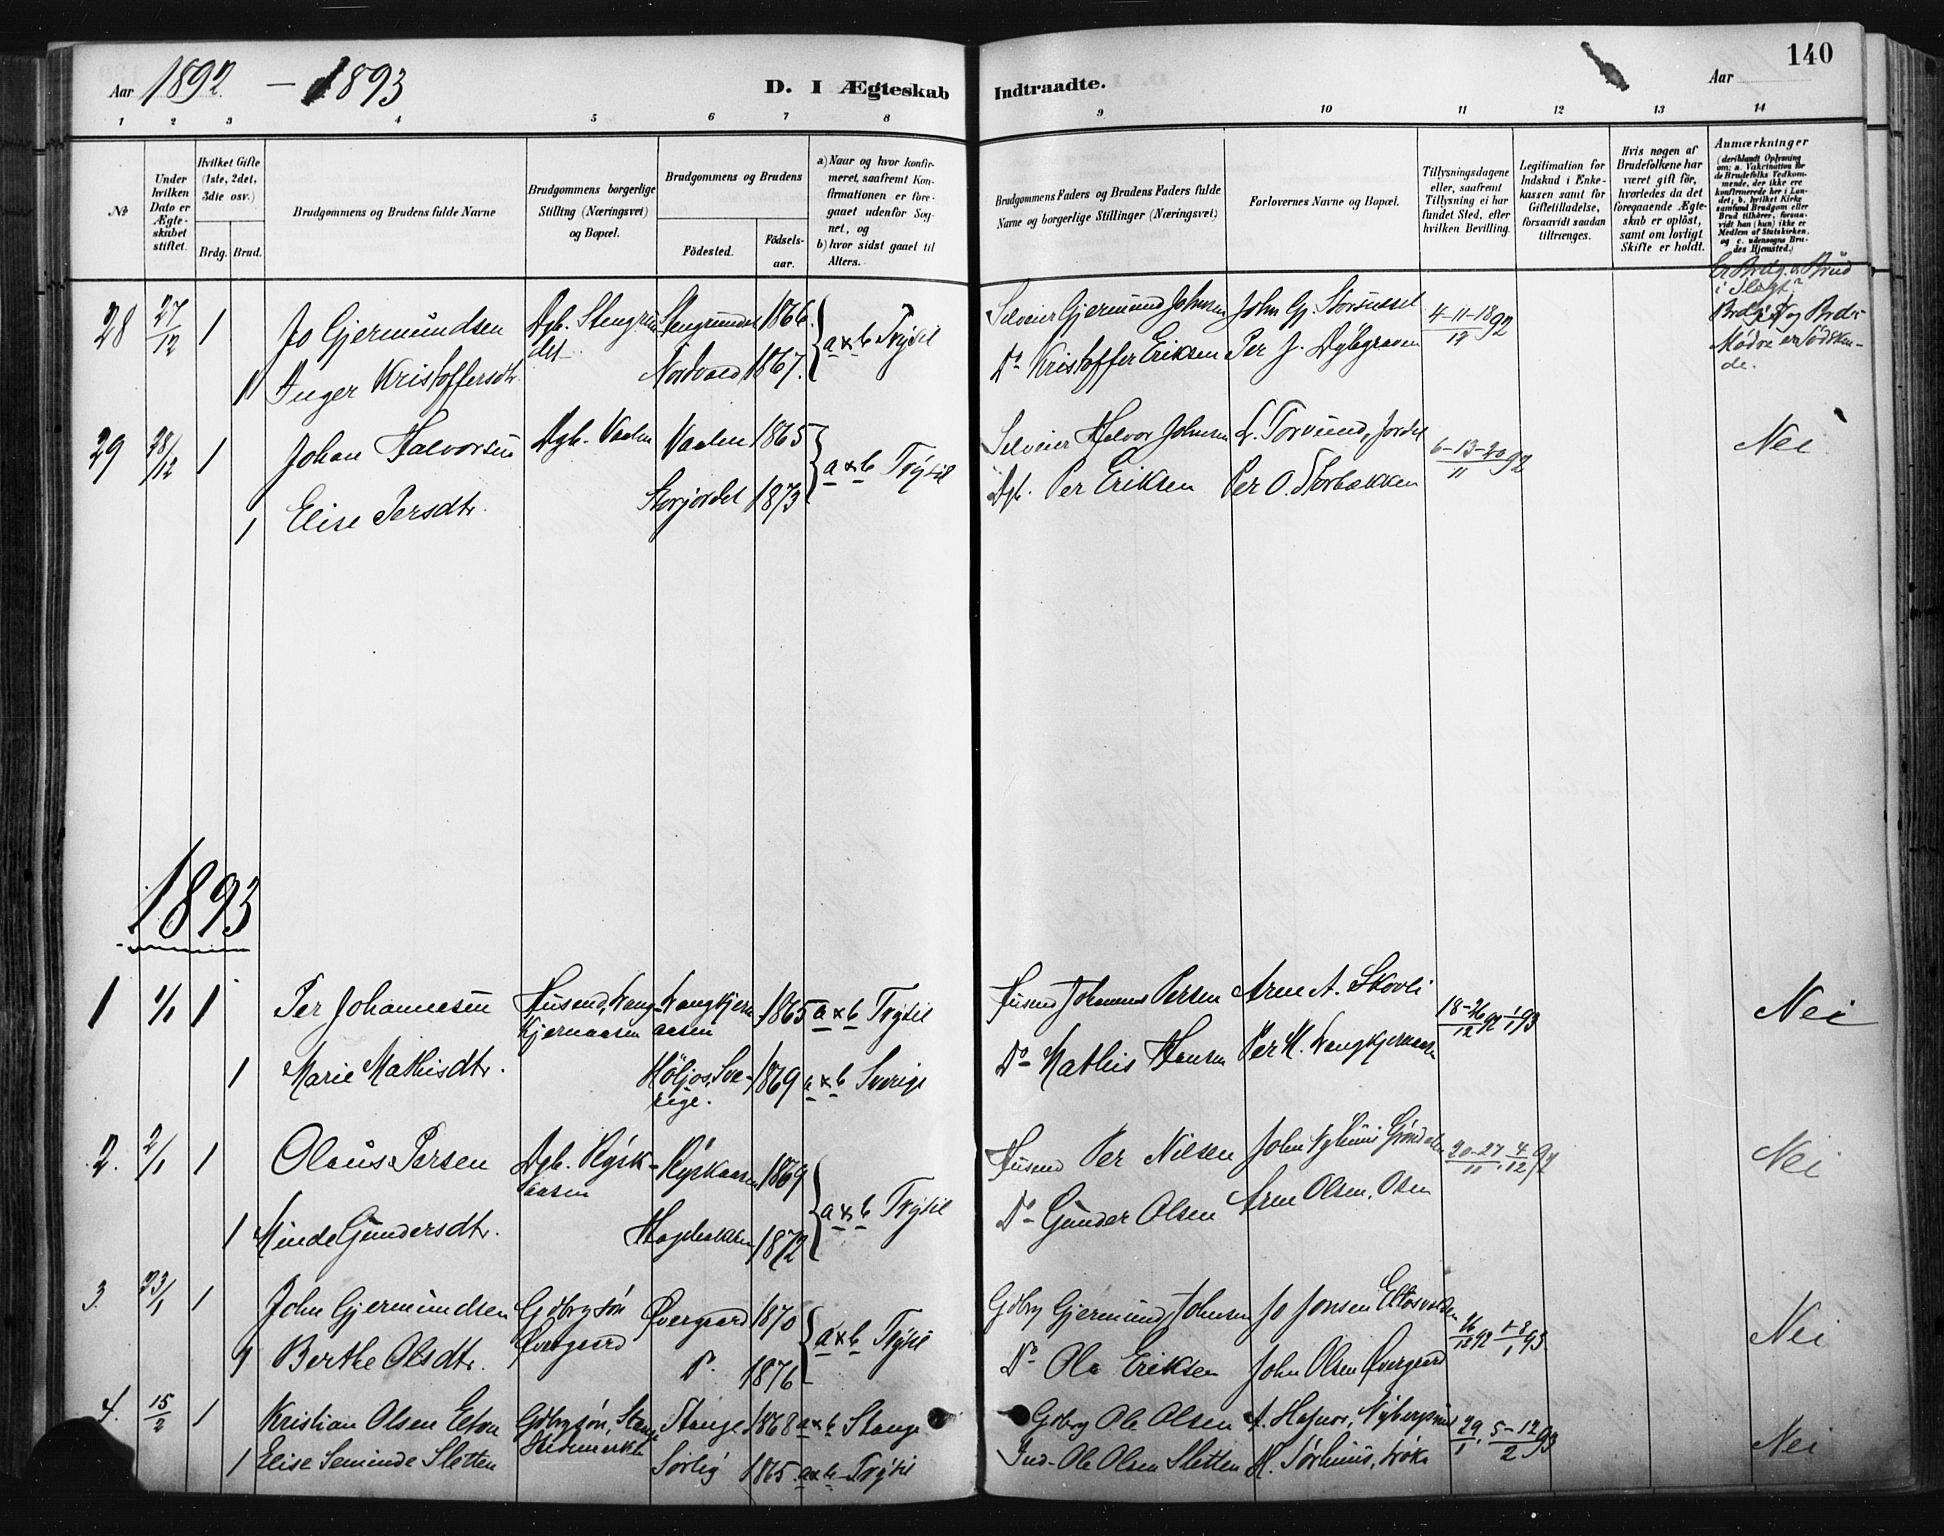 Aar 1892 – 1893
D. I Ægteskab
Indtraadte.
Aar
140
1 2 3 4 5 6 7 8 9 10 11 12 13 14
№
Under hvilken Dato er Ægteskabet stiftet.
Hvilket Gifte (1ste, 2det, 3die osv.)
Brdg. Brud.
Brudgommens og Brudens fulde Navne
Brudgommens borgerlige Stilling (Næringsvei) og Bopæl.
Brudgommens og Brudens
Fødested.
Fødselsaar.
a) Naar og hvor konfirmeret, saafremt Konfirmationen er foregaaet udenfor Sognet, og
b) hvor sidst gaaet til Alters.
Brudgommens Faders og Brudens Faders fulde Navne og borgerlige Stillinger (Næringsvei)
Forlovernes Navne og Bopæl.
Tillysningsdagene eller, saafremt Tillysning ei har fundet Sted, efter hvilken Bevilling.
Legitimation for Indskud i Enkekassen samt for Giftetilladelse, forsaavidt saadan tiltrænges.
Hvis nogen af Brudefolkene har været gift før, hvorledes da det foregaaende Ægteskab er opløst, samt om lovligt Skifte er holdt.
Anmærkninger
(deriblandt Oplysning om: a. Vaccination for de Brudefolks Vedkommende, der ikke ere konfirmerede her i Landet; b. hvilket Kirkesamfund Brudgom eller Brud tilhører, forsaavidt han (hun) ikke er Medlem af Statskirken, og c. udensogns Brudes Hjemsted.)
Er Brdg. & Brud i Slægt?
28 27/12 1 Jo Gjermundsen Dgb. Stengrundet Stengrundet 1866 a & b Trysil Selveier Gjermund Johnsen John Gj. Storsussel 4-11-18/12 92 Brdg. og Brds Mødre er Sødskende.
1 Inger Kristoffersdtr. Nordvold 1867. Do Kristoffer Eriksen Per J. Dybgraven
29 28/12 1 Johan Halvorsen Dgb. Vaalen Vaalen 1865 a & b Trysil Selveier Halvor Johnsen L. Torvund, Jordet 6-13-20/11 92 Nei
1 Elise Persdtr. Storjordet 1873 Dgb. Per Eriksen Per O. Storbækken
1893
1 1/1 1 Per Johannesen Husmd, Langkjernaasen Langkjernaasen 1865 a & b Trysil Husmd Johannes Persen Arne A. Skovli 18-26/12 92 1/1 93 Nei
1 Marie Mathisdtr. Höljes, Sverige. 1869 a & b Sverige Do Mathis Hansen Per M. Langkjernaasen
2. 2/1 1 Olaus Persen Dgb. Ryskaasen Ryskaasen 1869 a & b Trysil Husmd Per Nilsen John Nyhuus Grøndalen 20-27/11, 4/12 92 Nei
1 Minde Gundersdtr. Hagebakken 1872 Do Gunder Olsen Arne Olsen,
3. 23/1 1 John Gjermundsen Gdbrgsøn Øvergaard Øvergaard 1870 a & b Trysil Gdbrg Gjermund Johnsen Jo Jonsen 26/12 92 1-8/1 93. Nei
1 Berthe Olsdtr. Do 1876 Do Ola Eriksen John Olsen Øvergaard
4. 15/2 1 Kristian Olsen Gdbrgsøn, Stange Hedmarken Stange 1868 a & b Stange Gdbrg Ole Olsen A. Nybergsund 29/1, 5-12/2 93 Nei
1 Elise Seminde Sletten Sørlig 1865 a & b Trysil Ind. Ole Olsen Sletten M. Sørhuus,